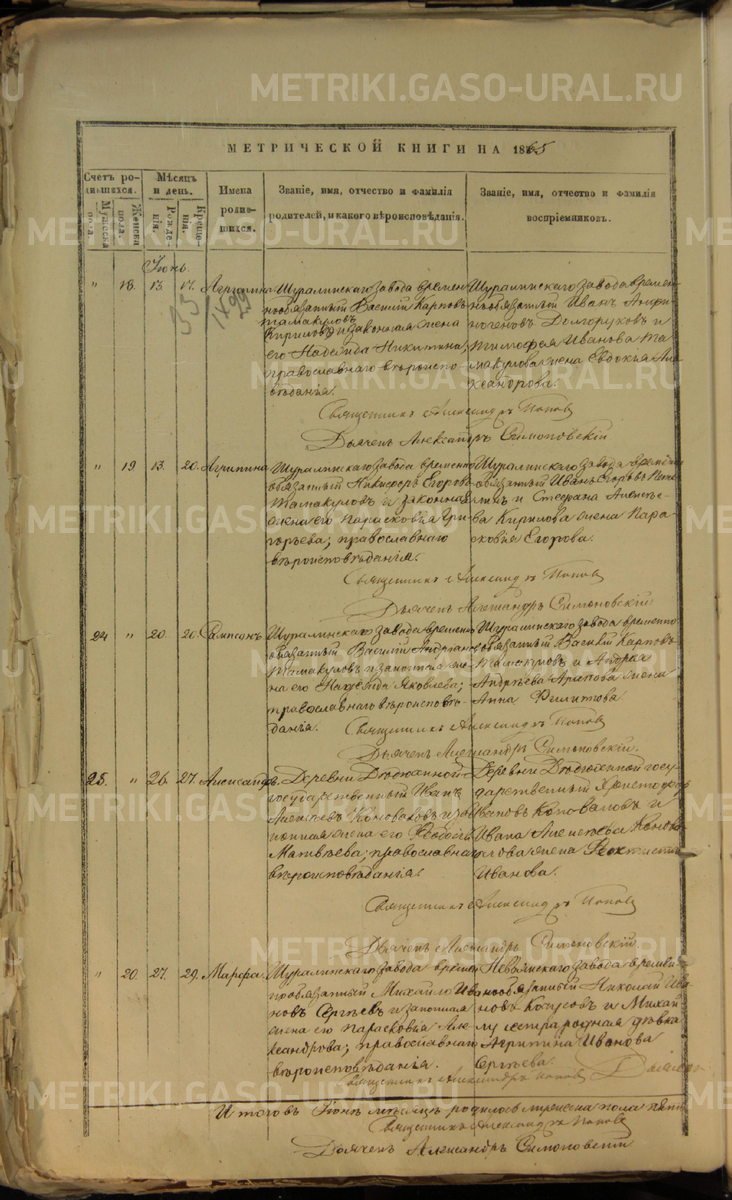 METRIKI.GASO-URAL.RU
МЕТРИЧЕСКОЙ КНИГИ НА 1865
Счетъ родившихся.
Мужеска пола.
Женска пола.
Мѣсяцъ и день.
Рожденія.
Крещенія.
Имена родившихся.
Званіе, имя, отчество и фамилія родителей, и какого вѣроисповѣданія.
Званіе, имя, отчество и фамилія воспріемниковъ.
Іюнь.
" 18. 13. 17. Агрипина
Шуралинскаго завода времен
нообязанный Василій Карповъ
Тамакуловъ
и законная жена
его Надежда Никитина;
православнаго вѣроиспо
вѣданія.
Шуралинскаго завода времен
нообязанный Иванъ
Долгоруковъ и
Тимофея Иванова Та
макулова жена Евдокья Але
ксандрова.
Священникъ Александръ Поповъ
Дьяченъ Александръ Симоновскій
" 19. 13. 20. Агрипина
Шуралинскаго завода временно
обязанный Никифоръ Егоровъ
Тамакуловъ и законная
жена его Парасковья Гри
горьева; православнаго
вѣроисповѣданія.
Шуралинскаго завода временно
обязанный Иванъ Егоровъ
и Стефана Алексѣе
ва Кирилова жена Пара
сковья Егорова.
Священникъ Александръ Поповъ
Дьяченъ Александръ Симоновскій
24 " 20. 20. Сампсонъ
Шуралинскаго завода временно
обязанный Василій Андріановъ
Тамакуловъ и законная же
на его Надежда Яковлева;
православнаго вѣроисповѣ
данія.
Шуралинскаго завода временно
обязанный Василій Карповъ
и Андрея
Андреева жена
Анна Филипова
Священникъ Александръ Поповъ
Дьяченъ Александръ Симоновскій.
25. " 26. 27. Александръ
Деревни
государственный Иванъ
Алексѣевъ Коноваловъ и за
конная жена его
Матвѣева; православнаго
вѣроисповѣданія.
Деревни госу
дарственный Христофоръ
Ивановъ Коноваловъ и
Ивана Алексѣева Коно
валова жена Феоктиста
Иванова.
Священникъ Александръ Поповъ
Дьяченъ Александръ Симоновскій.
" 20. 27. 29. Марфа.
Шуралинскаго завода време
ннообязанный Михайло Ива
новъ Сергѣевъ и законная
жена его Парасковья Але
ксандрова; православнаго
вѣроисповѣданія.
Невьянскаго завода времен
нообязанный Николай Ива
новъ и Михай
лу сестра родная дѣвка
Агрипина Иванова
Сергѣева.
Священникъ Александръ Поповъ
Итого въ Іюнѣ мѣсяцѣ родилось женска пола пять
Священникъ Александръ Поповъ
Дьяченъ Александръ Симоновскій